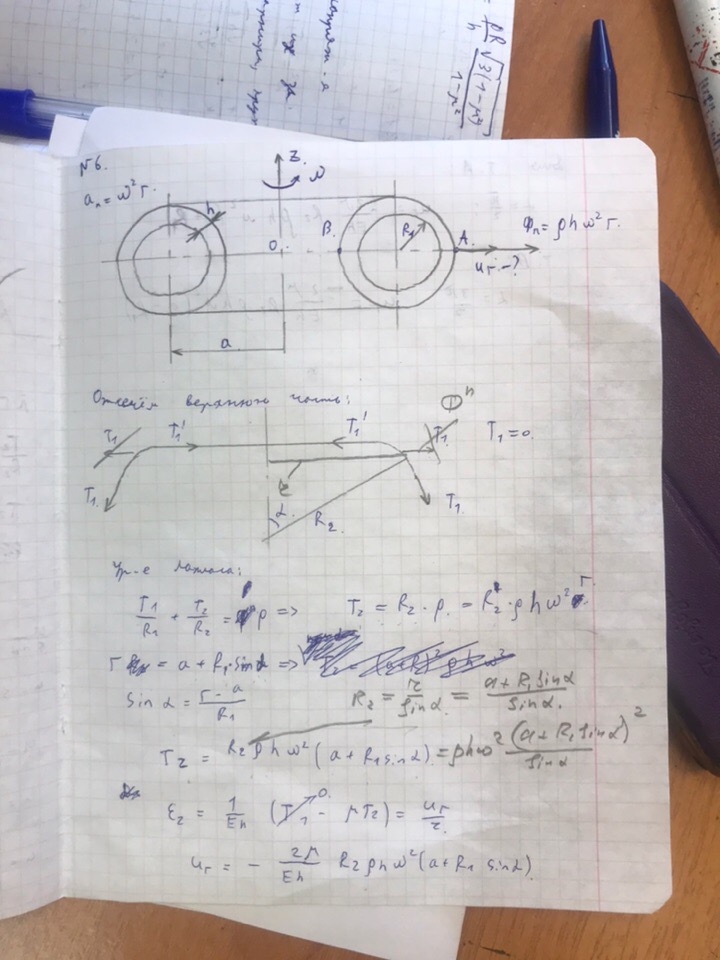 ρR/h √3(1-μ²)
1-μ²
№6.
aₙ = ω²r.
z.
ω
h
O.
B.
R₁
A.
Φₙ = ρhω²r.
uᵣ - ?
a
Отсечём верхнюю часть:
T₁ T₁' T₁' T₁ T₁ = 0.
T₁ α R₂ T₁
Ур-е Лапласа:
T₁/R₁ + T₂/R₂ = p => T₂ = R₂ · p = R₂ · ρhω² r
r = a + R₁ sinα =>
sinα = (r - a)/R₁ R₂ = r/sinα = (a + R₁ sinα)/sinα.
T₂ = R₂ρhω²(a + R₁ sinα) = ρhω² (a + R₁ sinα)²/sinα
ε₂ = 1/Eh (T₁ - μT₂) = uᵣ/r
0.
uᵣ = - rμ/Eh R₂ρhω²(a + R₁ sinα)